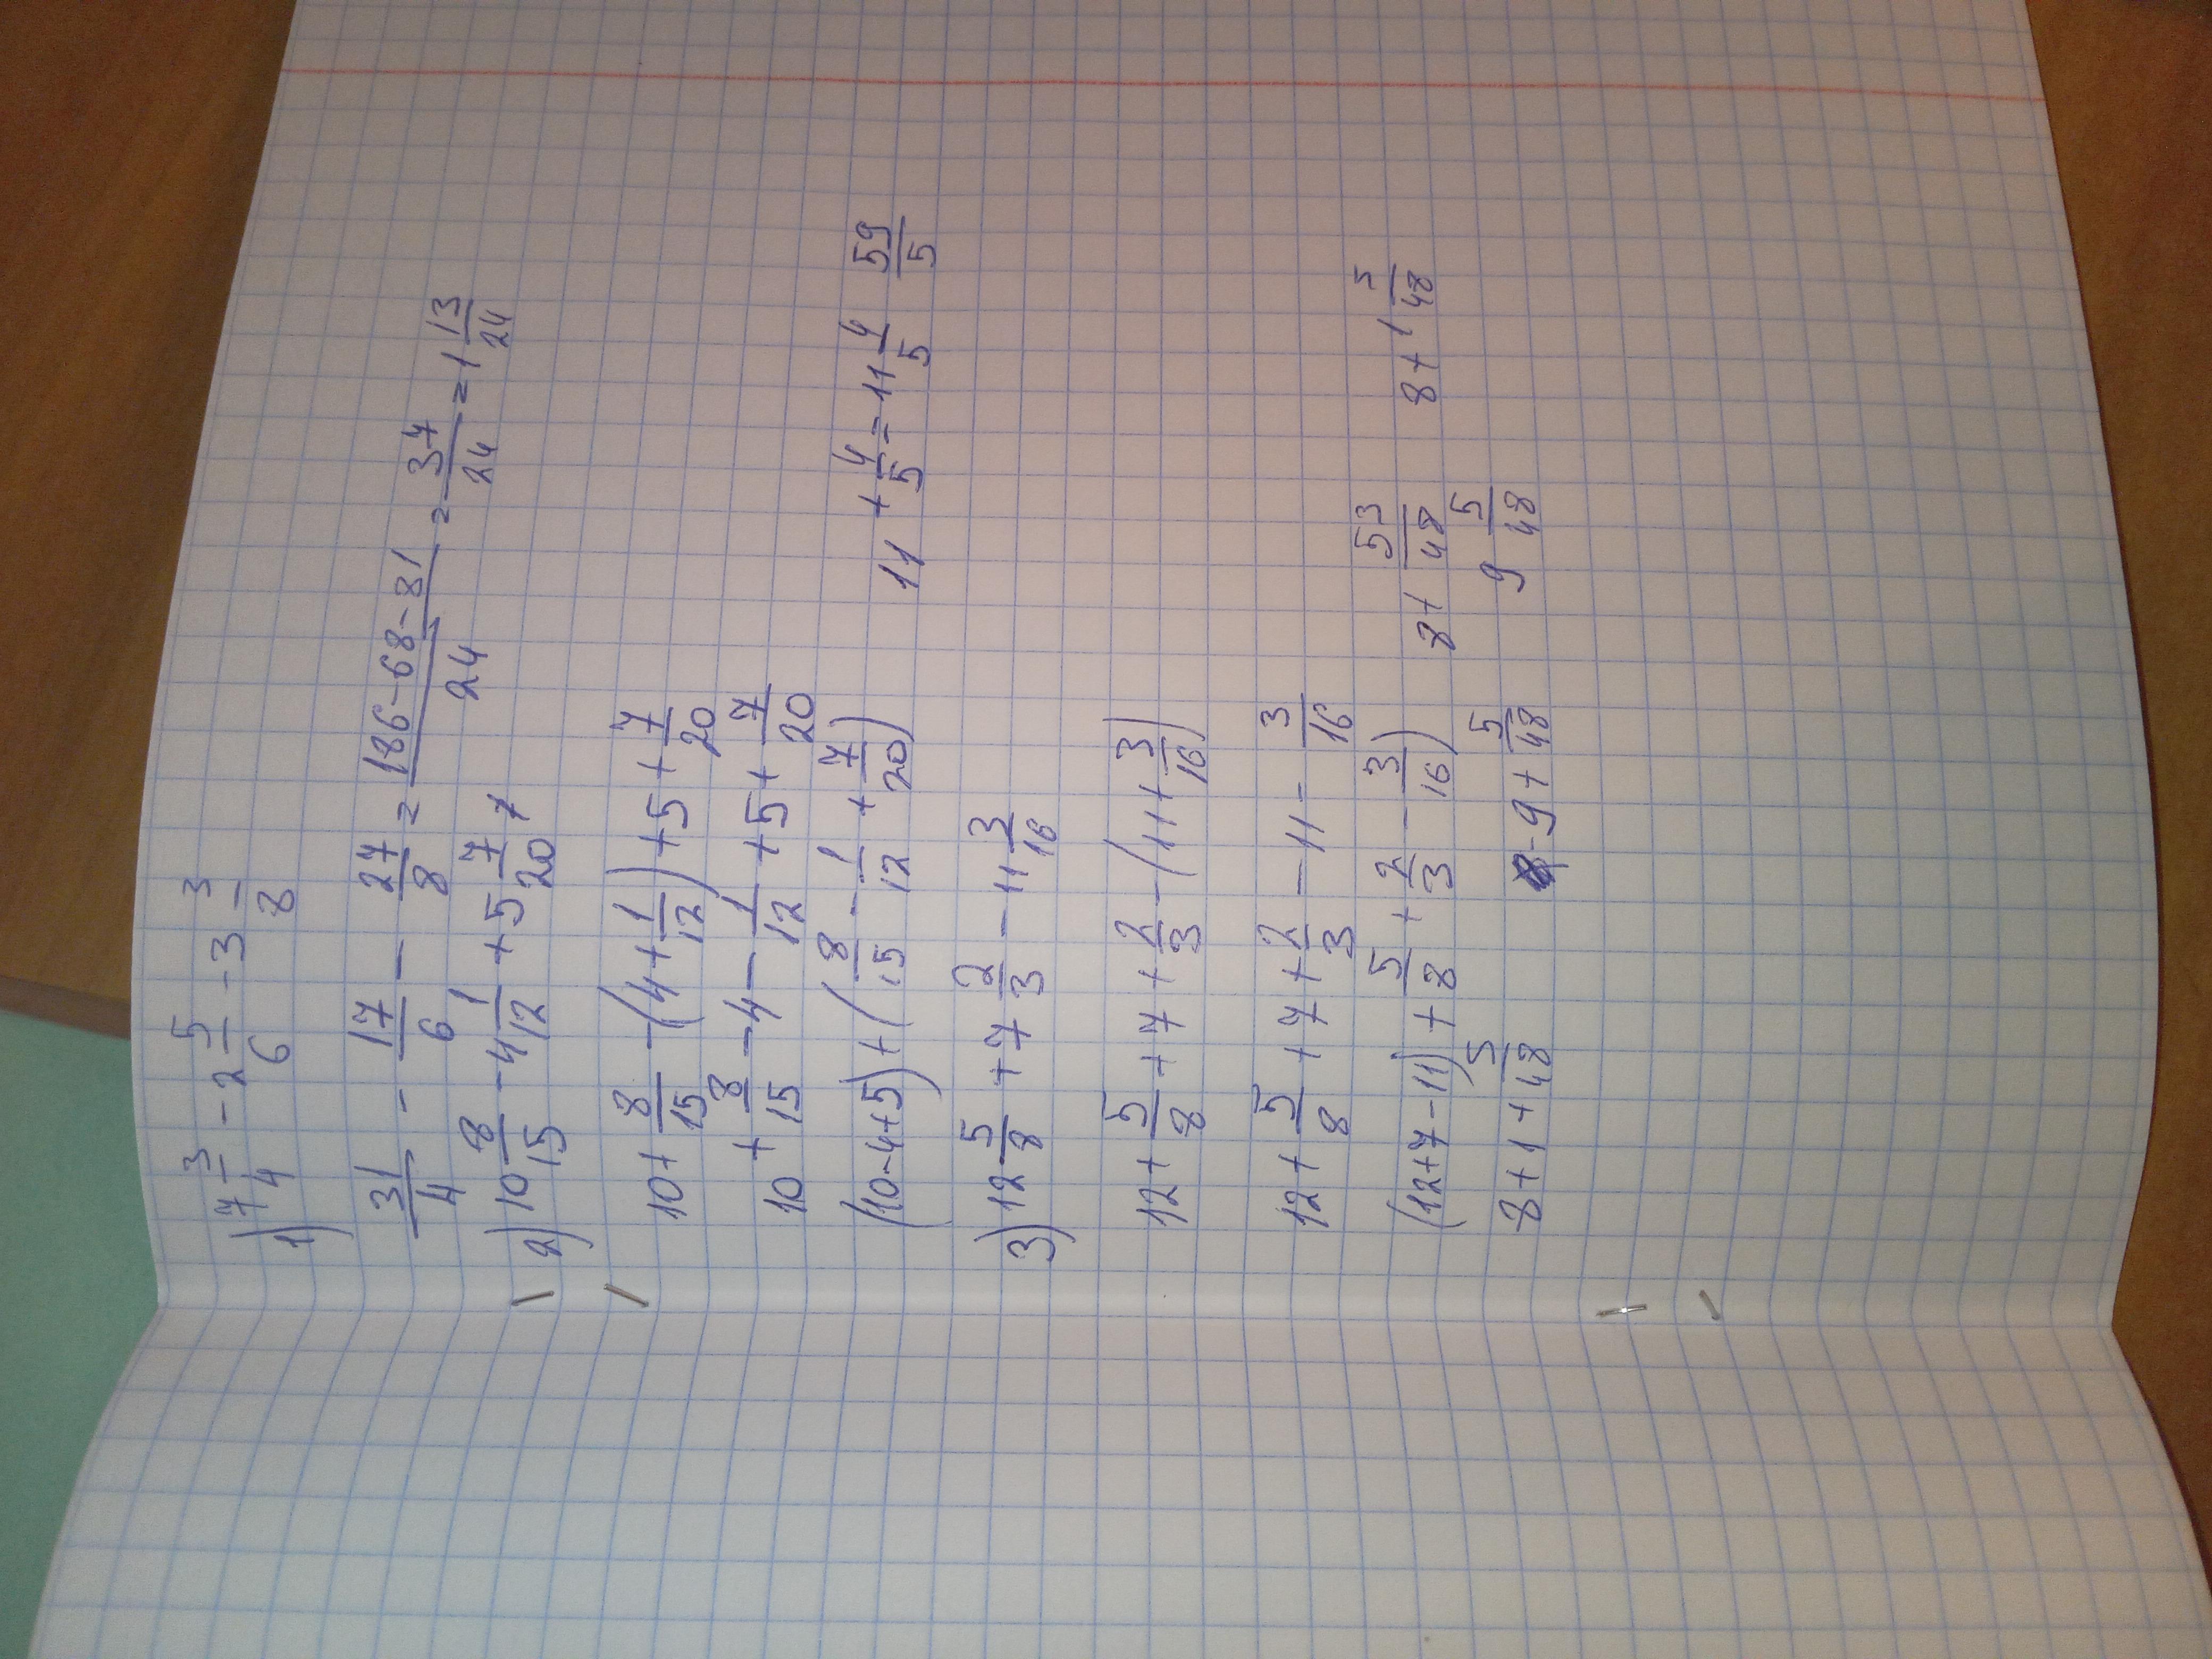 1) 7 3/4 - 2 5/6 - 3 3/8
31/4 - 17/6 - 27/8 = 186-68-81/24 = 37/24 = 1 13/24
2) 10 8/15 - 4 1/12 + 5 7/20
10 + 8/15 - (4 + 1/12) + 5 + 7/20
10 + 8/15 - 4 - 1/12 + 5 + 7/20
(10-4+5) + (8/15 - 1/12 + 7/20) 11 + 4/5 = 11 4/5 59/5
3) 12 5/8 + 7 2/3 - 11 3/16
12 + 5/8 + 7 + 2/3 - (11 + 3/16)
12 + 5/8 + 7 + 2/3 - 11 - 3/16
(12+7-11) + 5/8 + 2/3 - 3/16) 8 + 53/48 8 + 1 5/48
8 + 1 + 5/48 - 9 + 5/48 9 5/48